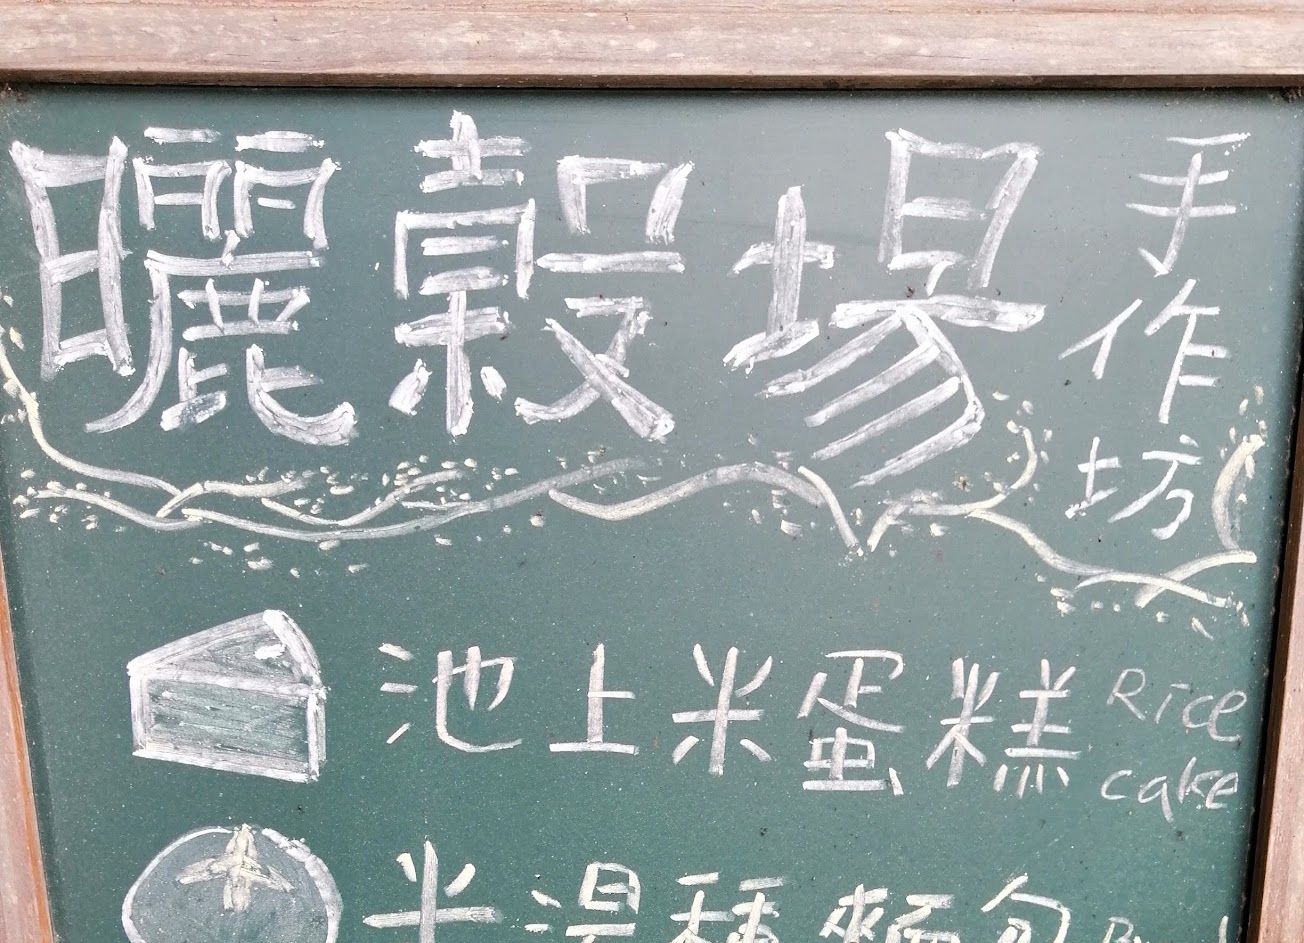 曬穀場 手作坊
池上米蛋糕 Rice cake
米湯種麵包